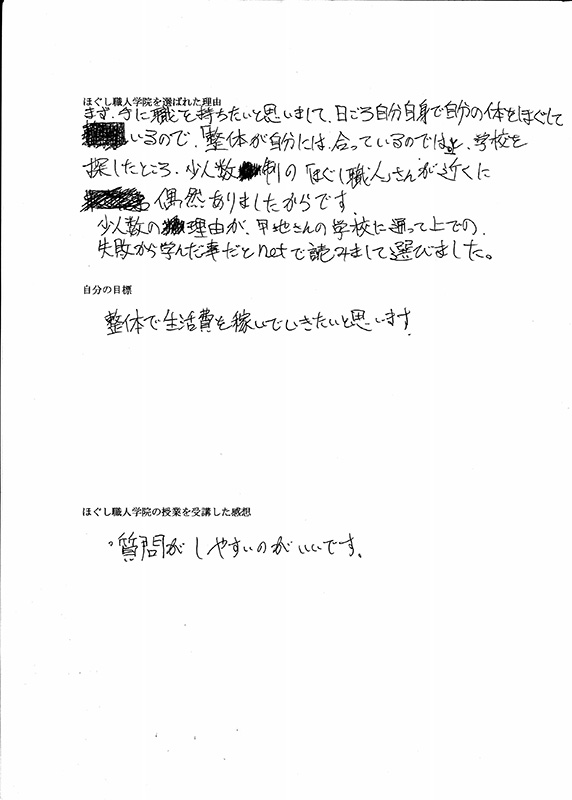 ほぐし職人学院を選ばれた理由
まず、手に職を持ちたいと思いまして、日ごろ自分自身で自分の体をほぐして
いるので、「整体が自分には、合っているのでは」と、学校を
探したところ、少人数制の「ほぐし職人」さんが近くに
偶然ありましたからです
少人数の理由が、甲地さんの学校に通って上での、
失敗から学んだ事だとnetで読みまして選びました。
自分の目標
整体で生活費を稼いでいきたいと思います
ほぐし職人学院の授業を受講した感想
質問がしやすいのがいいです。